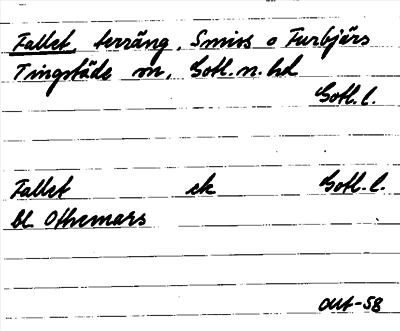 Fallet, terräng, Smiss o Furbjärs
Tingstäde sn, Gotl. n. hd
Gotl. l.
Fallet ek Gotl. l.
bl. Othemars
OUt-58